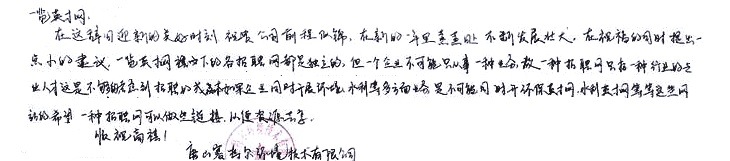 一览英才网.
在这辞旧迎新的美好时刻 祝贵公司前程似锦, 在新的一年里蒸蒸日上 不断发展壮大, 在祝福的同时提出一
点小的建议. 一览英才网旗下的各招聘网都是独立的, 但一个企业不可能只从事一种业务, 故一种招聘网只招一种行业的专
业人才这是不够的 考虑到招聘的成本 如果企业同时开展环境, 水利等多方面业务 是不可能同时开环保英才网, 水利英才网等等这些网
站的 希望一种招聘网可以做些链接, 以便资源共享.
顺祝商祺!
唐山赛杰尔环境技术有限公司